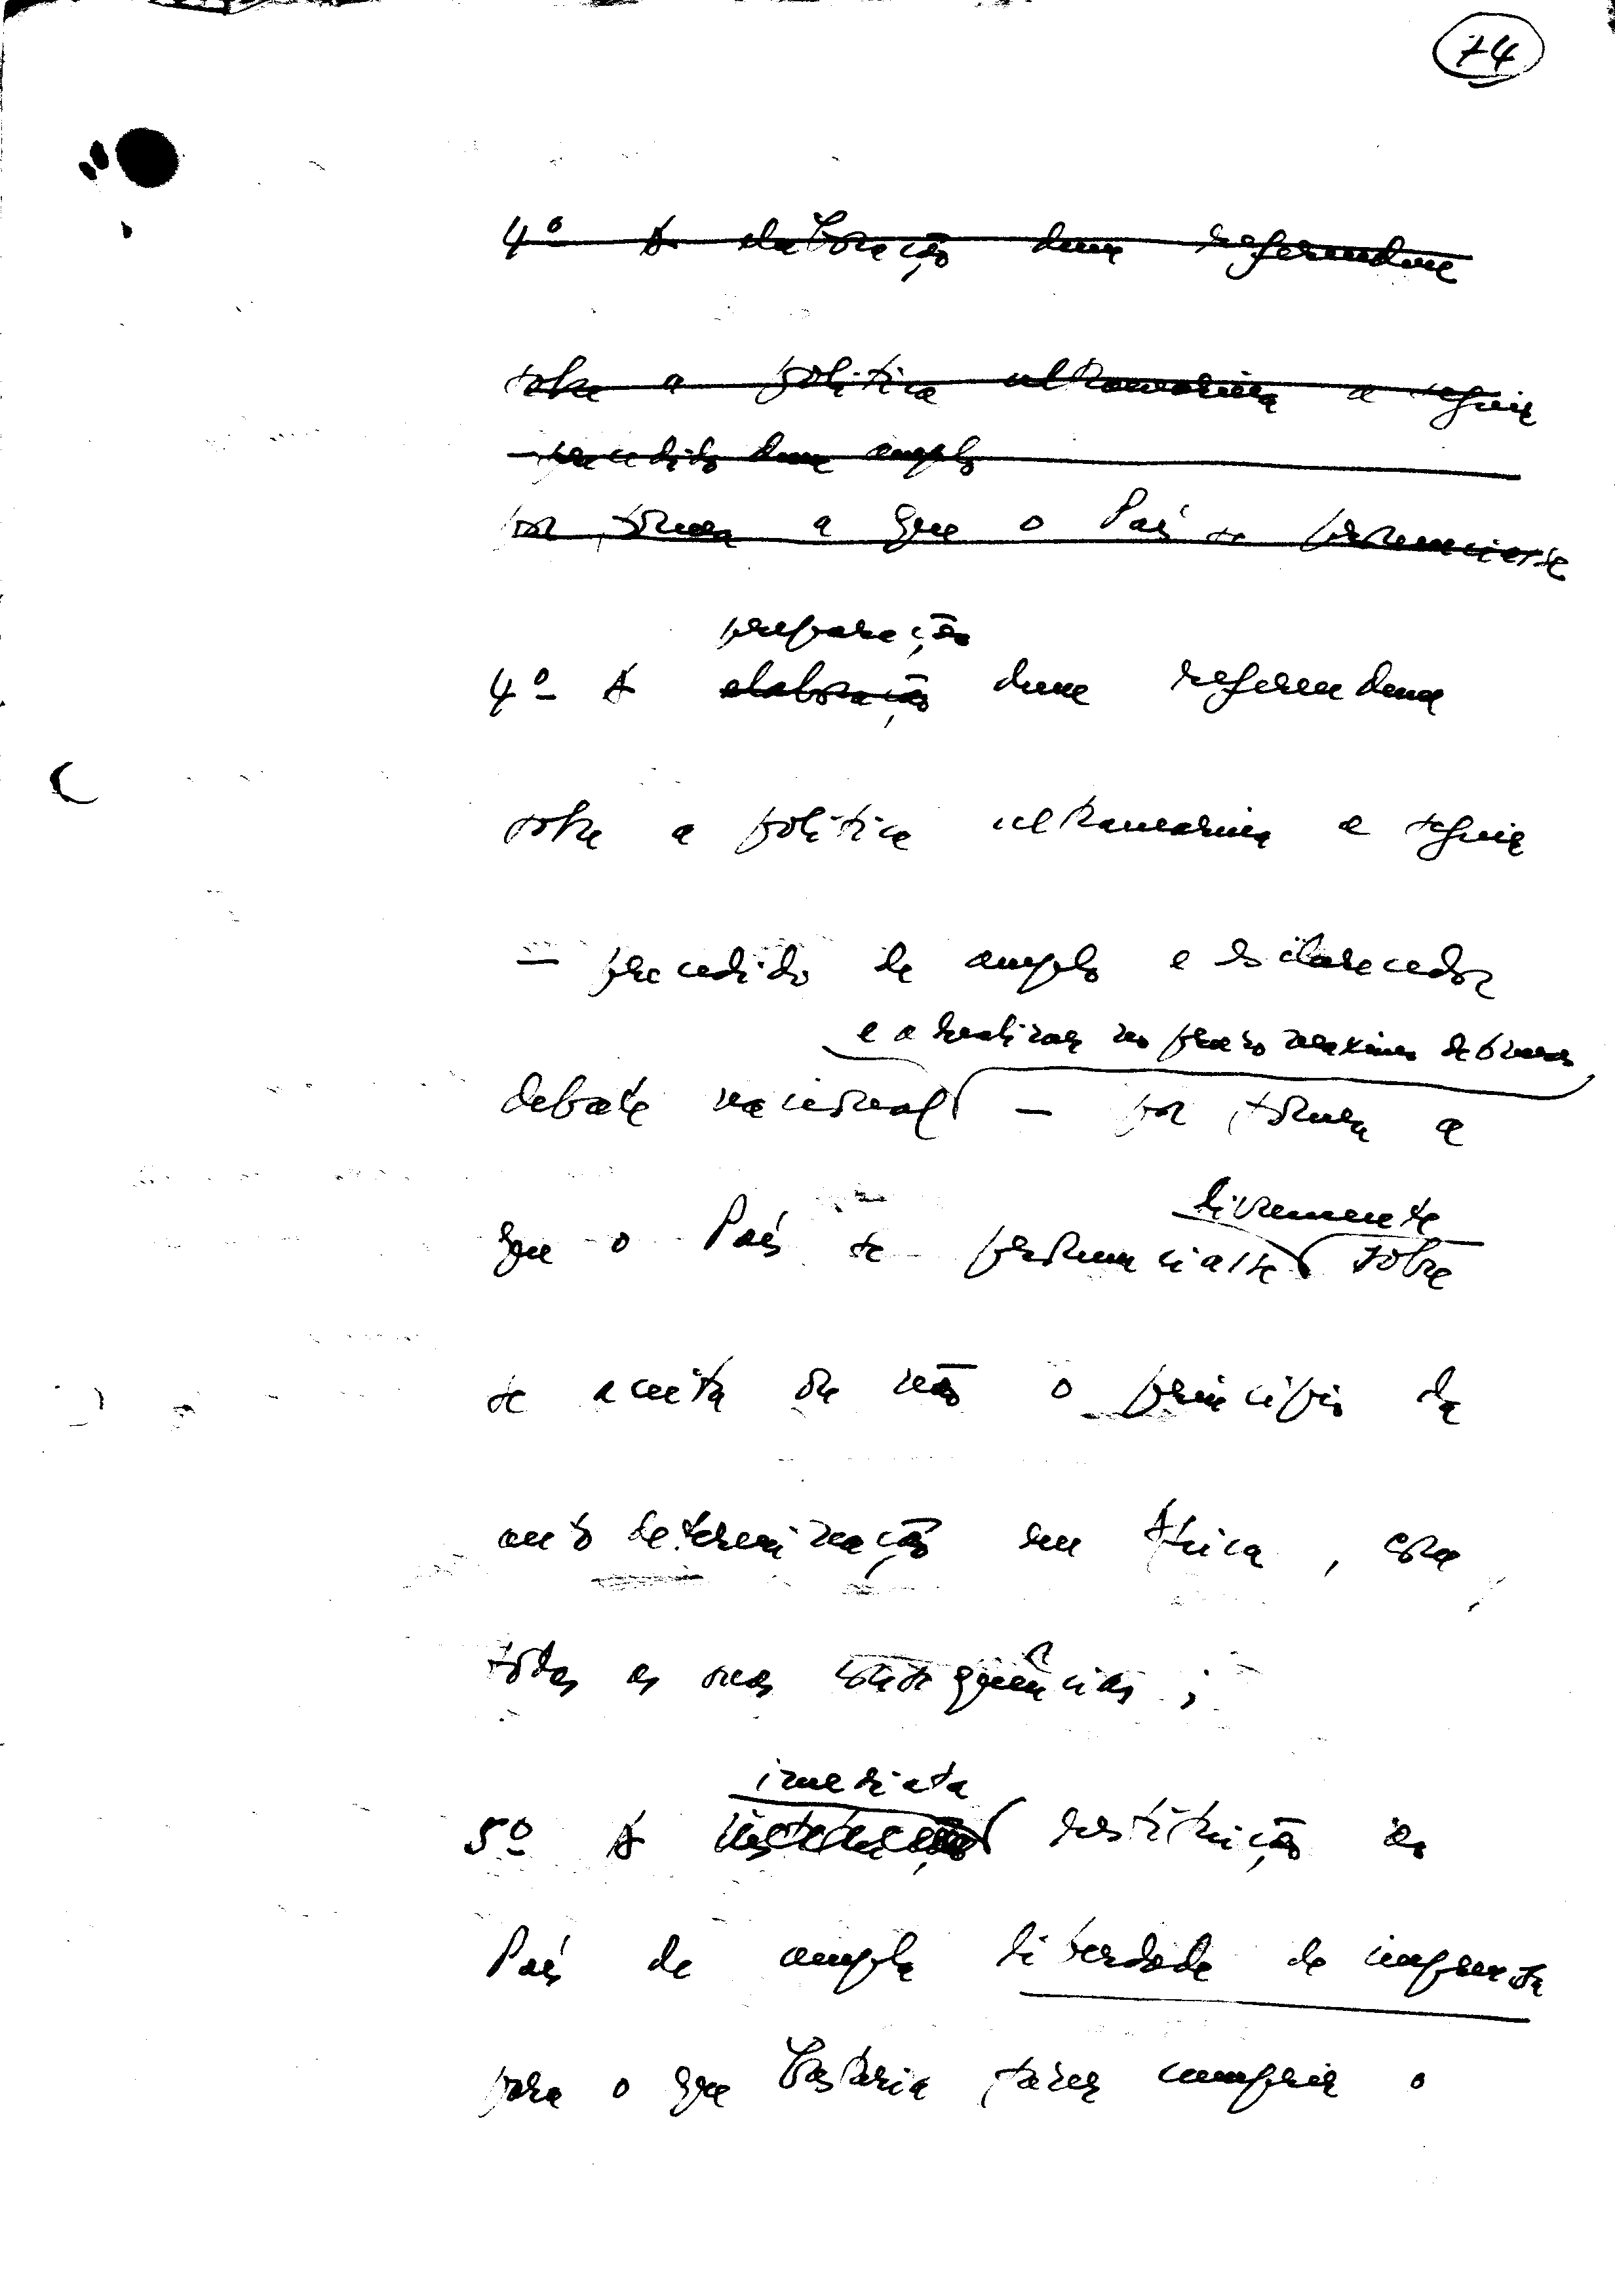 74
4º A elaboração dum referendum
sobre a política ultramarina a seguir
— precedido dum amplo
por forma a que o País se pronunciasse
preparação
4º A elaboração dum referendum
sobre a política ultramarina a seguir
— precedido de amplo e esclarecedor
e a realizar no prazo máximo de 6 meses
debate nacional — por forma a
livremente
que o País se pronunciasse sobre
se aceita ou não o princípio da
auto determinação em África, com
todas as suas consequências;
imediata
5º A restituição ao
País de ampla liberdade de imprensa
para o que bastaria fazer cumprir o